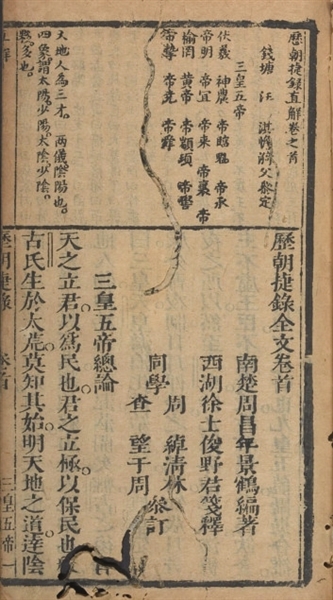 歷朝捷錄直解卷之首
錢塘 汪 淇憺漪父叅定
三皇五帝
伏羲 神農 帝臨魁 帝承
帝明 帝宜 帝來 帝裏 帝
榆罔 黃帝 帝顓頊 帝嚳
帝摯 帝堯 帝舜
天地人為三才。 兩儀陰陽也。
四象謂太陽。少陽。太陰。少陰。
多也。
歷朝捷錄全文卷首
南楚周昌年景鶴編著
西湖徐士俊野君箋釋
同學 周 綽清林
查 望于周 叅訂
三皇五帝總論
天之立君以為民也。君之立極以保民也。
古氏生於太荒莫知其始明天地之道達陰
歷朝捷錄 卷首 三皇五帝 一